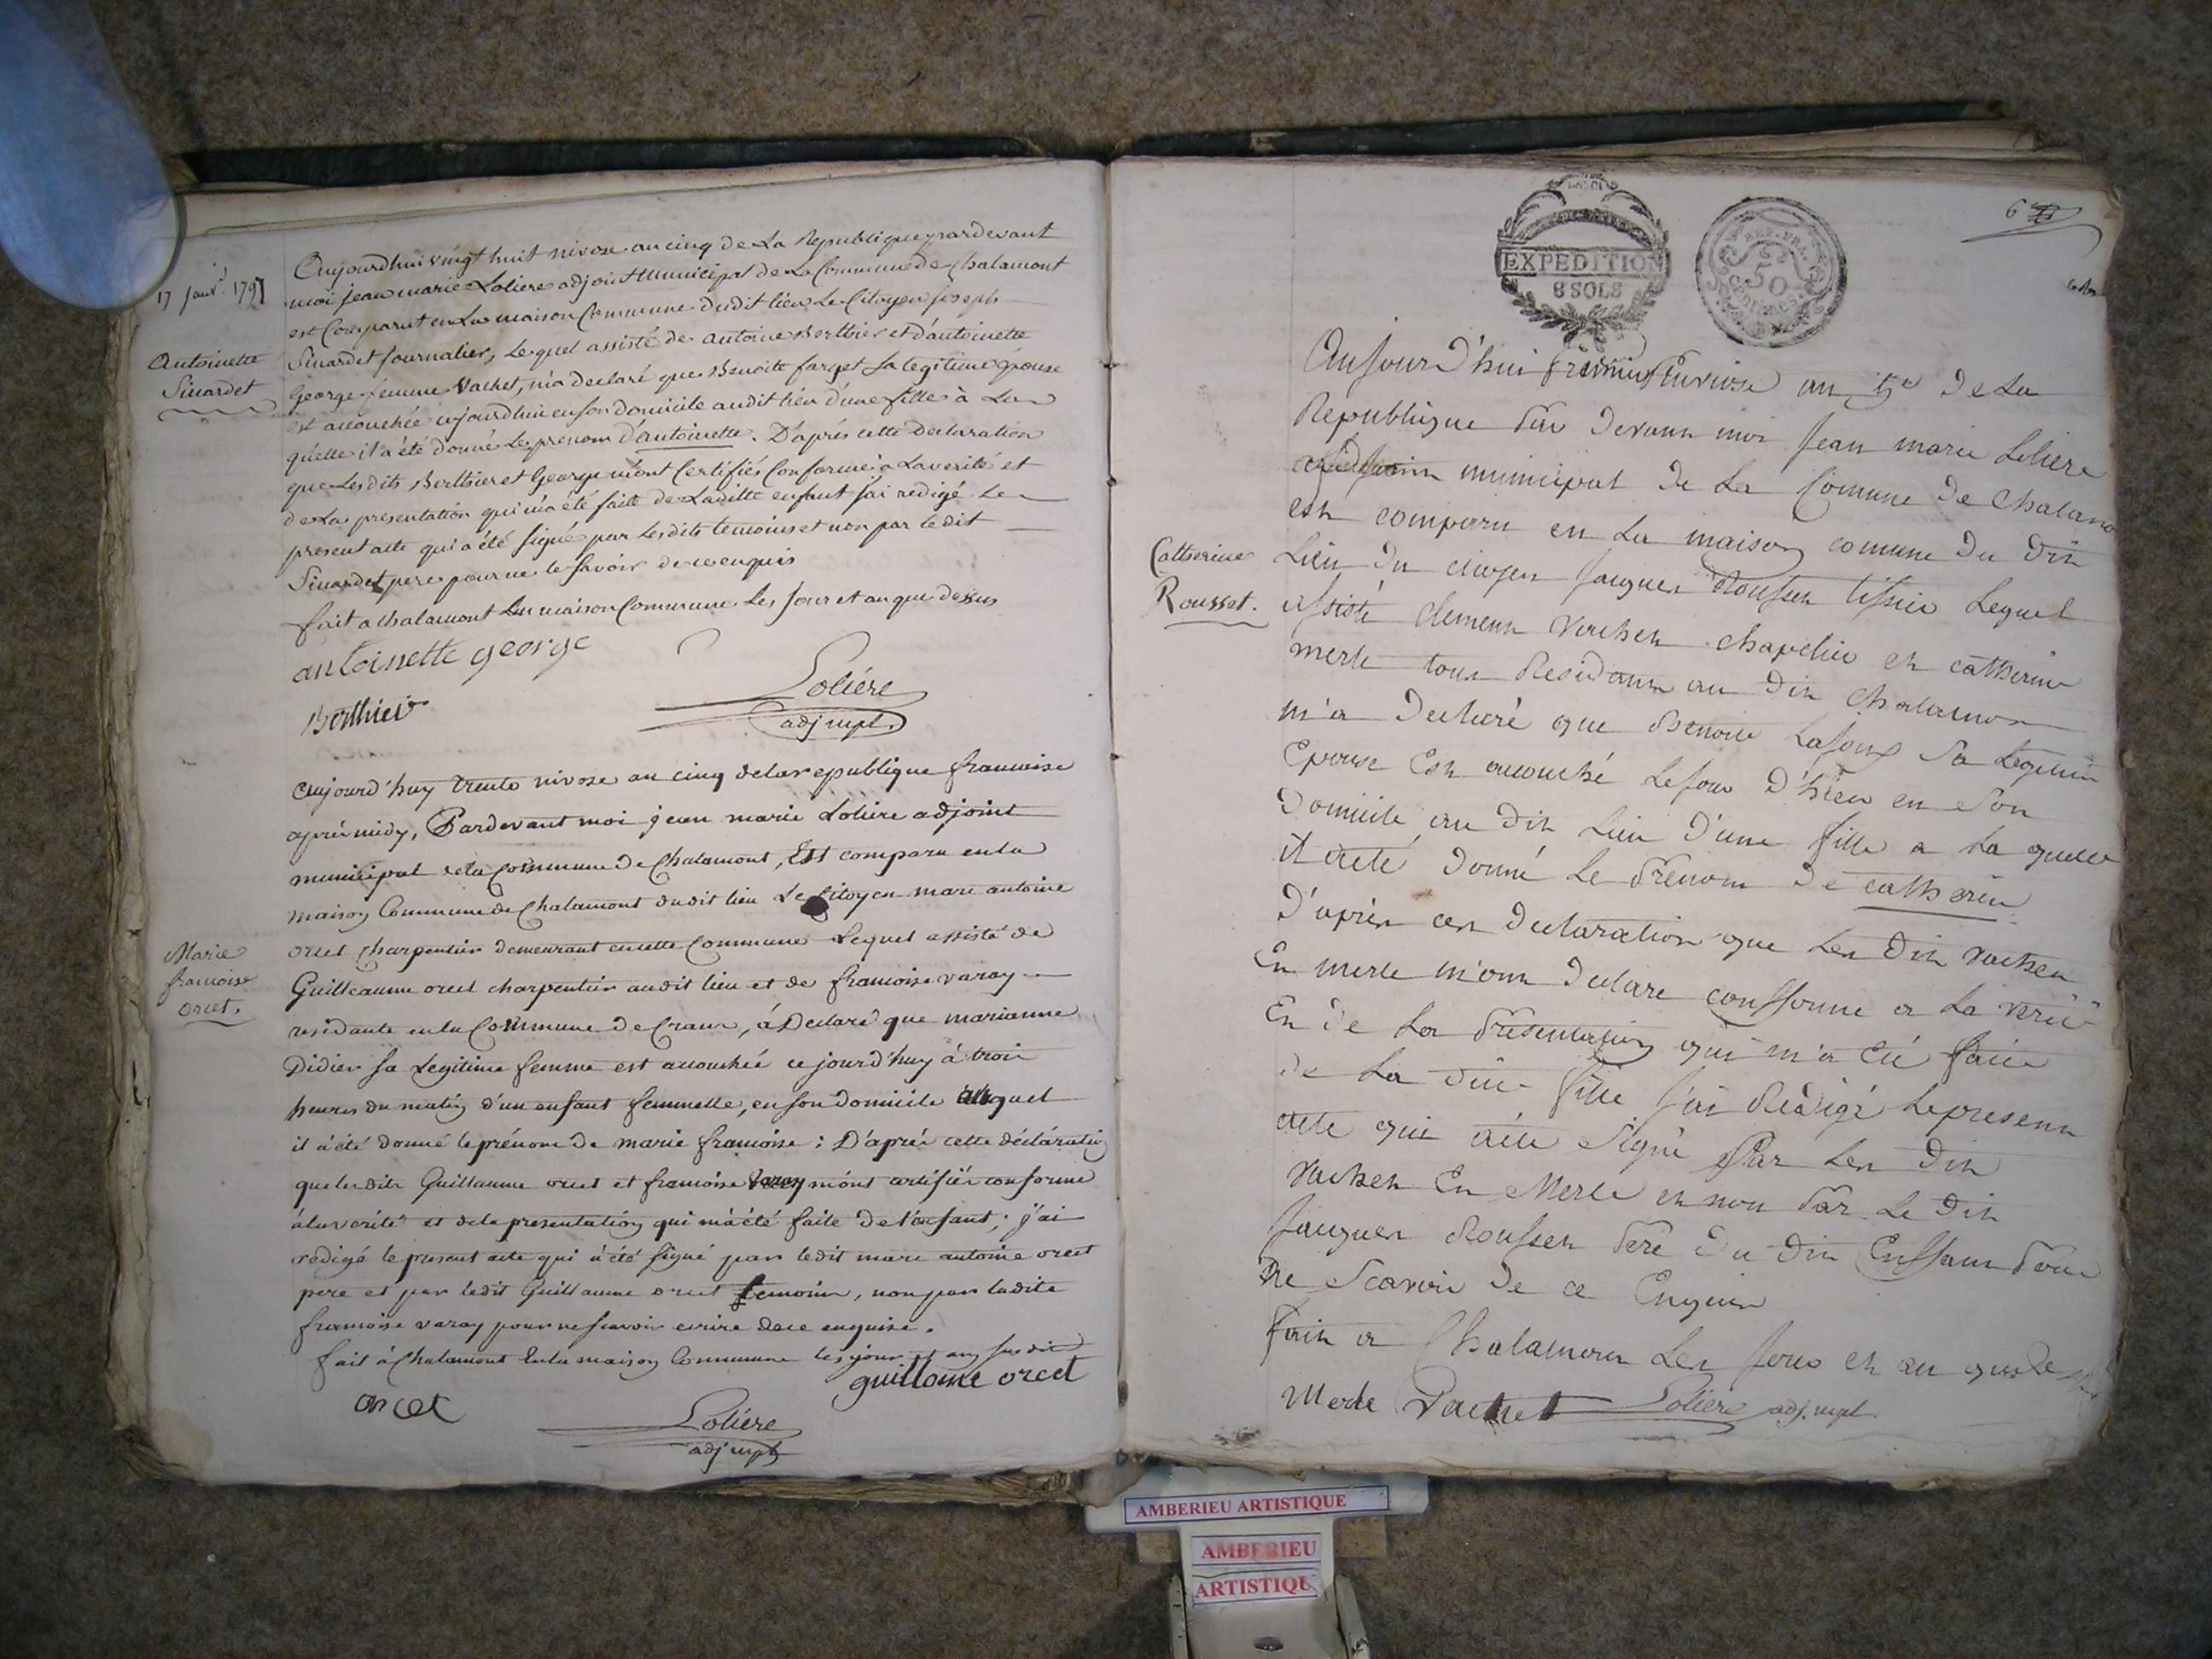 17 Janv. 1797
Aujourdhui vingt huit nivose an cinq de La Republique pardevant
moi jean marie Loliere adjoint Municipal de La Commune de Chalamont
est Comparut en La maison Commune dudit lieu Le Citoyen joseph
Antoinette
Sinardet
Sinardet journalier, Lequel assisté de antoine Berthier et d'antoinette
George femme Vachet, m'a declaré que Benoite farget sa legitime épouse
est accouchée cejourdhui en son domicile audit lieu d'une fille à La
quelle il a été donné Le prenom d'antoinette. D'après cette Declaration
que Lesdits Berthier et George m'ont Certifiés Conforme à La verité et
de La présentation qui m'a été faite de Laditte enfant j'ai redigé Le
present acte qui a été signé par Lesdits temoins et non par ledit
Sinardet pere pour ne le savoir de ce enquis
fait a Chalamont En maison Commune Les jour et an que dessus
antoinette george
Berthier
Loliére
adj mpl.
aujourd'huy trente nivose an cinq de la republique francoise
aprés midy, Pardevant moi jean marie Loliere adjoint
municipal de la Commune De Chalamont, Est comparu en la
maison Commune de Chalamont dudit lieu Le Citoyen marc antoine
Marie
francoise
orcet.
orcet charpentier demeurant en cette Commune Lequel assisté de
Guilleaume orcet charpentier audit lieu et de francoise varay
residante en la Commune De Crans, á Declaré que marianne
Didier sa Legitime femme est accouchée ce jourd'huy à trois
heures du matin d'un enfant femmelle, en son Domicile auquel
il a été donné le prénom de marie francoise : D'aprés cette déclaration
que lesdits Guillaume orcet et francoise varay m'ont certifiés conforme
à la verité et de la presentation qui m'a été faite de l'enfant ; j'ai
redigé le present acte qui a été signé par ledit marc antoine orcet
pere et par ledit Guillaume orcet temoin, non par ladite
francoise varay pour ne scavoir ecrire de ce enquise.
fait à Chalamont En la maison Commune les jour et an susdit
guillome orcet
orcet
Loliére
adj mpl
6
EXPEDITION
6 SOLS
REP. FRA.
50
centimes
Aujour D'hui pluviose an 5e De La
Republique Par Devant moi Jean marie Loliere
municipal De La Comune De Chalamo
est comparu en La maison comune Du Dit
Catherine
Rousset.
Lieu Du citoyen Jacques Rousset tissier Lequel
assisté clement Vachet chapelier et catherine
merle tous Residant au Dit Chalamon
m'a Declaré que Benoite Lafont Sa Legitime
Epouse Est acouché Le jour D'hier en Son
Domicile au Dit Lieu D'une fille a La quelle
il a été Donné Le Prenom De catherine
D'aprés cet Declaration que Les Dit Vachet
Et merle m'ont Declare confforme a La verité
Et De La Presentation qui m'a Eté faite
De La Dite fille J'ai Redigé Le present
acte qui a été Signé Par Les Dit
Vachet Et Merle et non Par Le Dit
Jacques Rousset Pere Du Dit Enffant Pour
Ne Scavoir De ce Enquis
fait a Chalamont Les Jour et an que De
Merle Vachet Loliére adj. mpl.
AMBERIEU ARTISTIQUE
AMBERIEU
ARTISTIQU